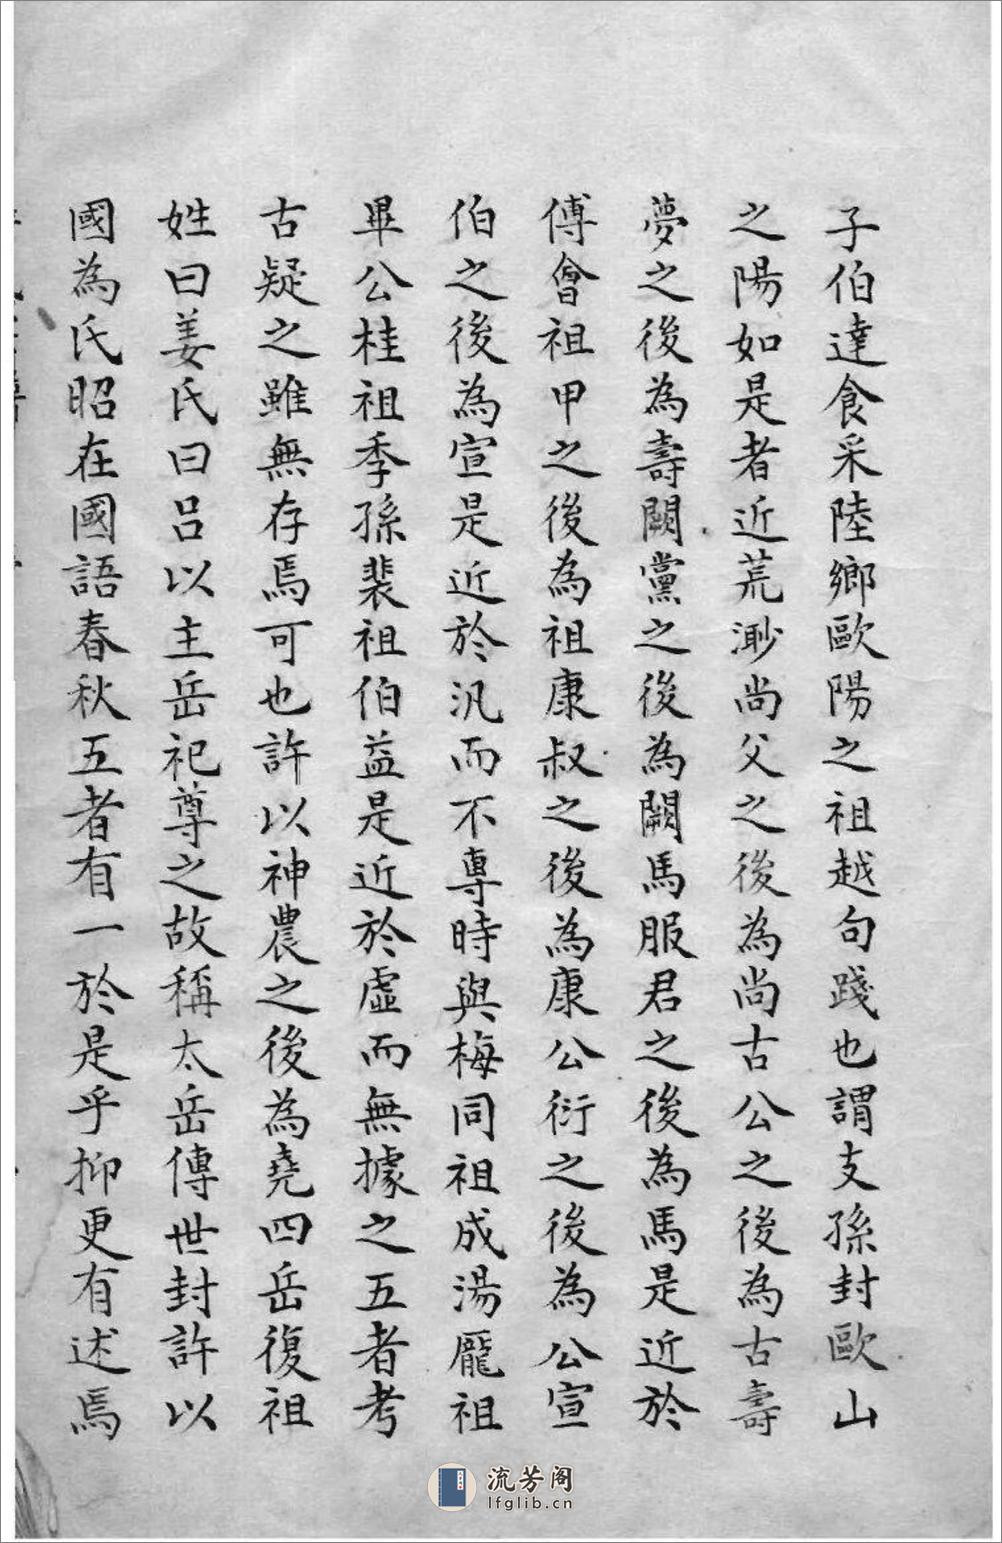 子伯達食采陸鄉歐陽之祖越句踐也謂支孫封歐山
之陽如是者近荒渺尚父之後為尚古公之後為古壽
夢之後為壽闕黨之後為闕馬服君之後為馬是近於
傅會祖甲之後為祖康叔之後為康公衍之後為公宣
伯之後為宣是近於汎而不專時與梅同祖成湯龐祖
畢公桂祖季孫裴祖伯益是近於虛而無據之五者考
古疑之雖無存焉可也許以神農之後為堯四岳復祖
姓曰姜氏曰呂以主岳祀尊之故稱太岳傳世封許以
國為氏昭在國語春秋五者有一於是乎抑更有述焉
流芳阁
lfglib.cn